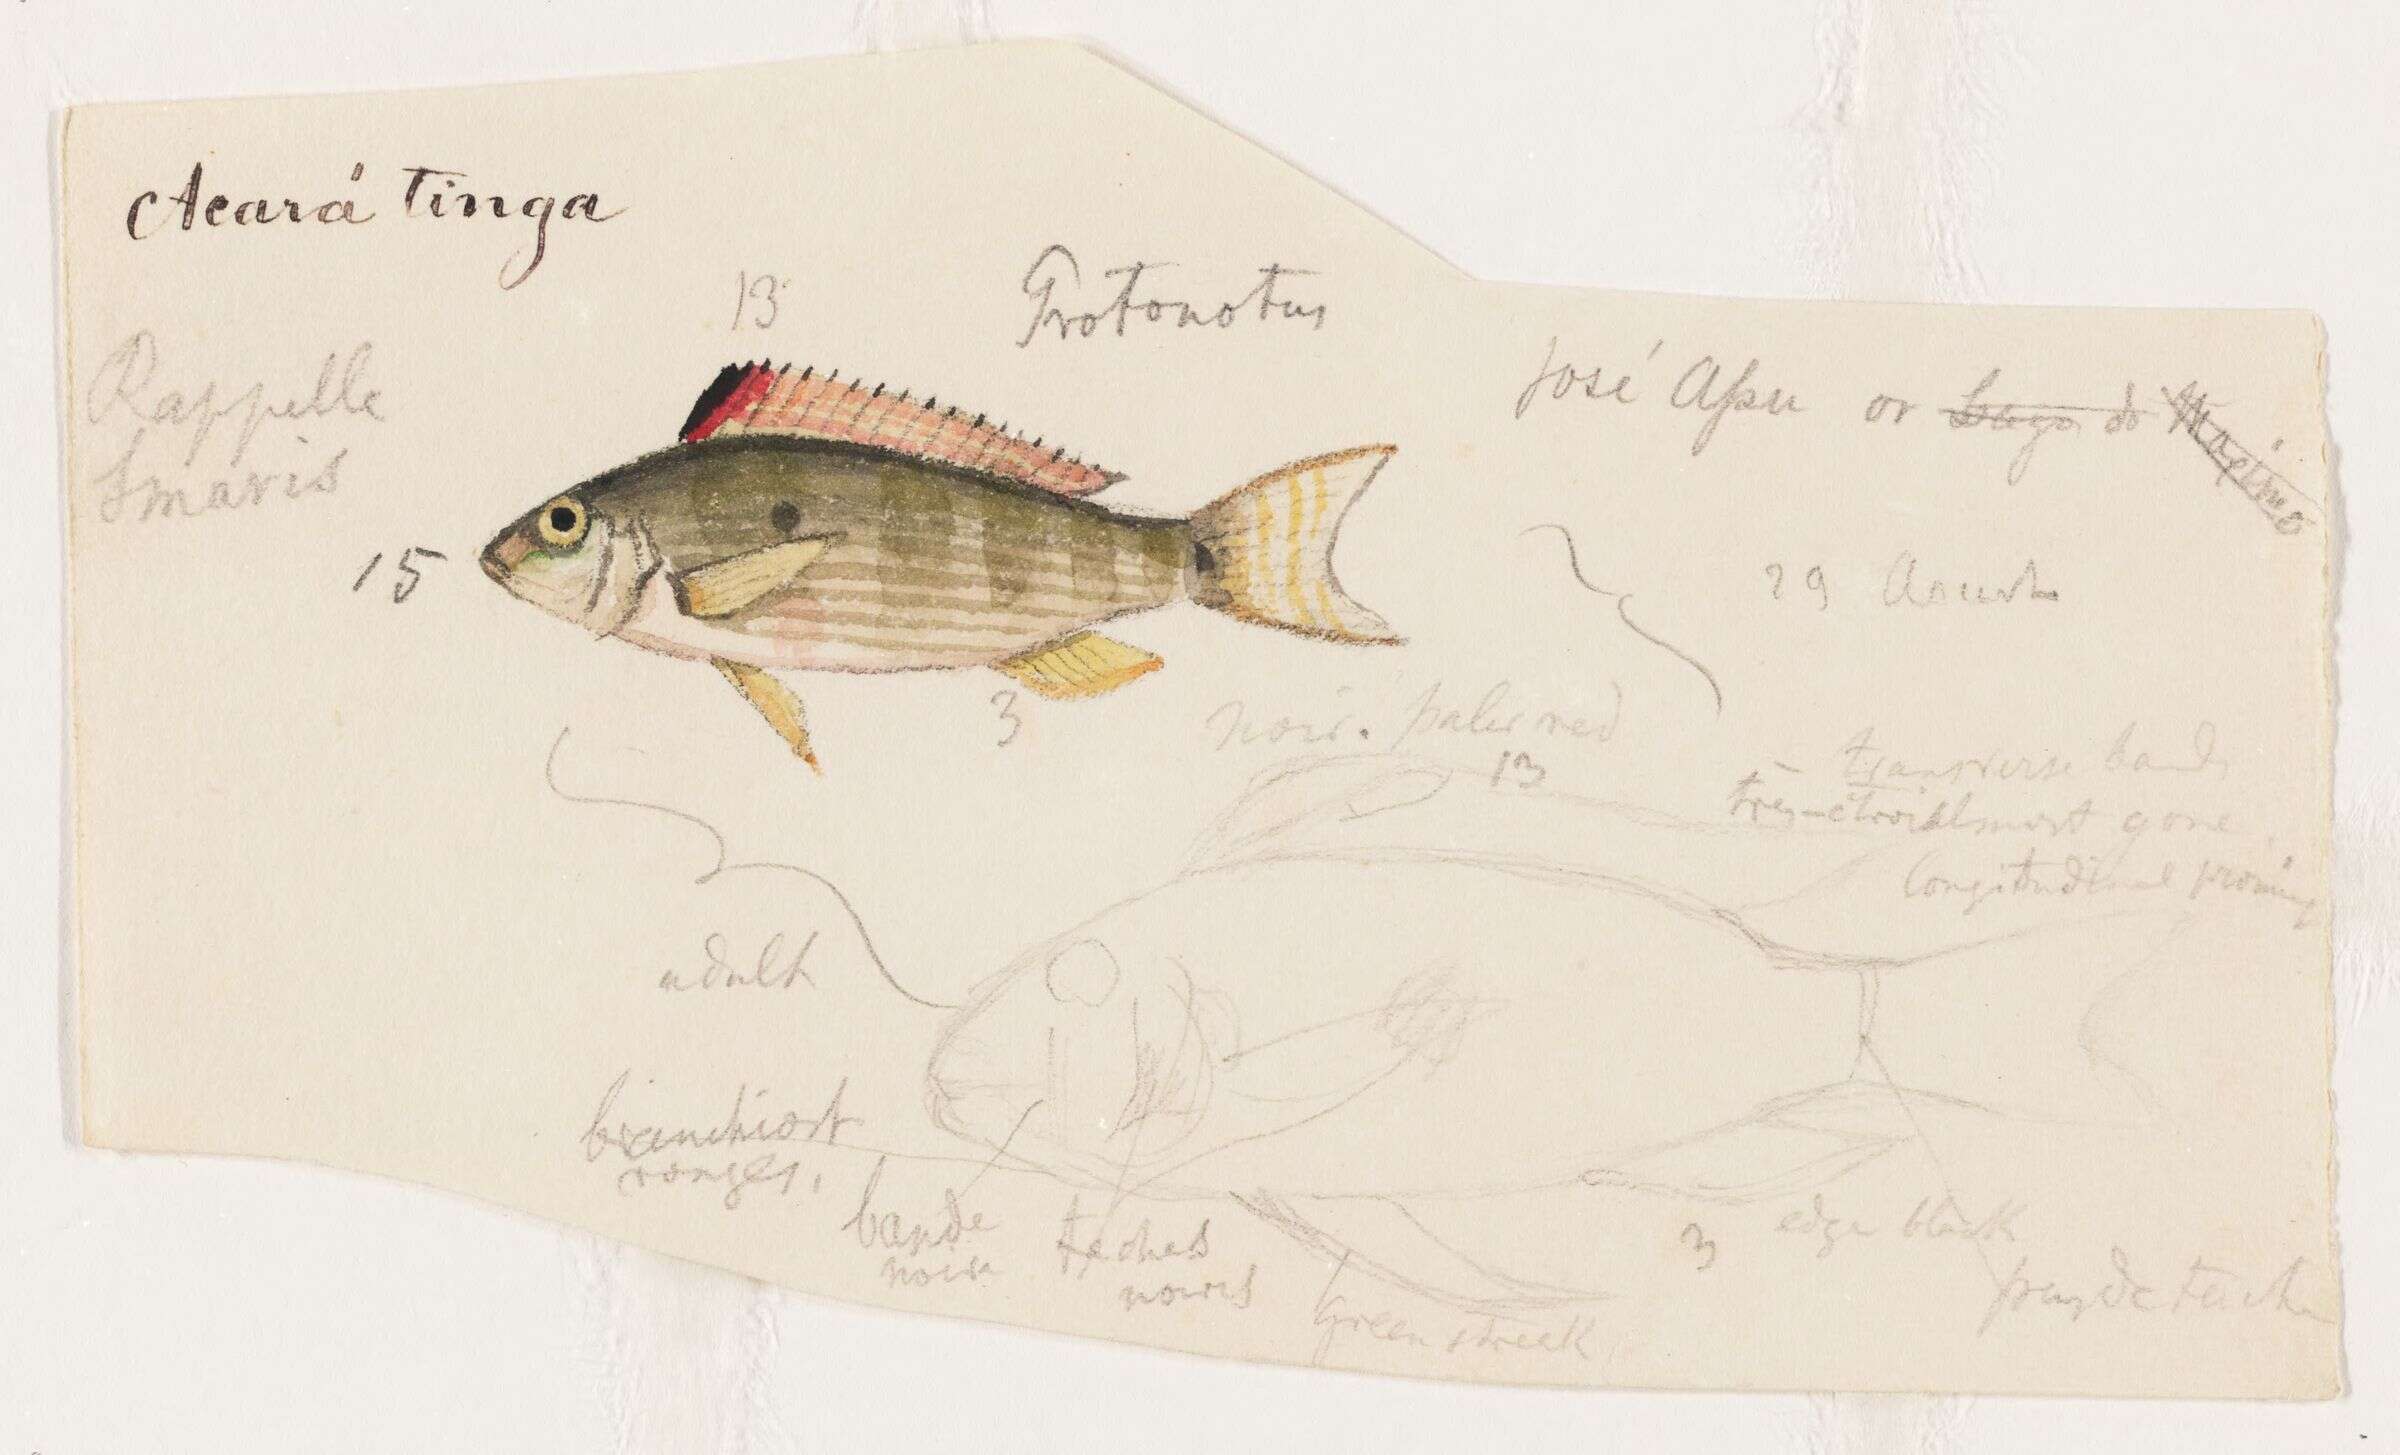 Acará tinga
13
Protonotus
Rappelle
Smaris
José Assu or Lago do Maximo
15
29 Aoust
3
noir. paler red
13
transverse bands
almost gone
longitudinal
adult
branchiost
ronges.
bande
noire
taches
noires
Green streak
3
edge black